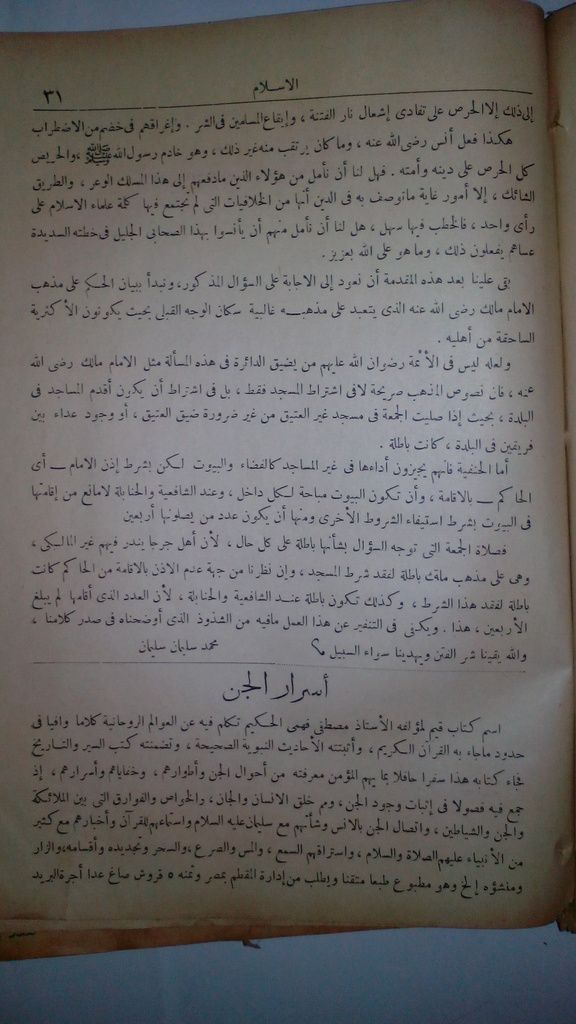 الاسلام
٣١
إلى ذلك إلا الحرص على تفادى إشعال نار الفتنة ، وإيقاع المسلمين فى الشر . وإغراقهم فى خضم من الاضطراب
هكذا فعل أنس رضى الله عنه ، وما كان يرتقب منه غير ذلك ، وهو خادم رسول الله ﷺ ، والحريص
كل الحرص على دينه وأمته . فهل لنا أن نأمل من هؤلاء الذين مادفعهم إلى هذا المسلك الوعر ، والطريق
الشائك ، إلا أمور غاية ما توصف به فى الدين أنها من الخلافيات التى لم تجتمع فيها كلمة علماء الاسلام على
رأى واحد ، فالخطب فيها سهل ، هل لنا أن نأمل منهم أن يأنسوا بهذا الصحابى الجليل فى خطته السديدة
عساهم يفعلون ذلك ، وما هو على الله بعزيز .
بقى علينا بعد هذه المقدمة أن نعود إلى الاجابة على السؤال المذكور، ونبدأ ببيان الحكم على مذهب
الامام مالك رضى الله عنه الذى يتعبد على مذهبه غالبية سكان الوجه القبلى بحيث يكونون الأكثرية
الساحقة من أهليه .
ولعله ليس فى الأئمة رضوان الله عليهم من يضيق الدائرة فى هذه المسألة مثل الامام مالك رضى الله
عنه ، فان نصوص المذهب صريحة لا فى اشتراط المسجد فقط ، بل فى اشتراط أن يكون أقدم المساجد فى
البلدة ، بحيث إذا صليت الجمعة فى مسجد غير العتيق من غير ضرورة ضيق العتيق ، أو وجود عداء بين
فريقين فى البلدة ، كانت باطلة .
أما الحنفية فانهم يجيزون أداءها فى غير المساجد كالفضاء والبيوت لكن بشرط إذن الامام ــ أى
الحاكم ــ بالاقامة ، وأن تكون البيوت مباحة لكل داخل ، وعند الشافعية والحنابلة لامانع من إقامتها
فى البيوت بشرط استيفاء الشروط الأخرى ومنها أن يكون عدد من يصلونها أربعين
فصلاة الجمعة التى توجه السؤال بشأنها باطلة على كل حال ، لأن أهل جرجا يندر فيهم غير المالكى ،
وهى على مذهب مالك باطلة لفقد شرط المسجد ، وإن نظرنا من جهة عدم الاذن بالاقامة من الحاكم كانت
باطلة لفقد هذا الشرط ، وكذلك تكون باطلة عند الشافعية والحنابلة ، لأن العدد الذى أقامها لم يبلغ
الأربعين ، هذا . ويكفى فى التنفير عن هذا العمل مافيه من الشذوذ الذى أوضحناه فى صدر كلامنا ،
والله يقينا شر الفتن ويهدينا سواء السبيل محمد سليمان سليمان
أسرار الجن
اسم كتاب قيم لمؤلفه الأستاذ مصطفى فهمى الحكيم تكلم فيه عن العوالم الروحانية كلاما وافيا فى
حدود ماجاء به القرآن الكريم ، وأثبتته الأحاديث النبوية الصحيحة ، وتضمنته كتب السير والتاريخ
فجاء كتابه هذا سفرا حافلا بما يهم المؤمن معرفته من أحوال الجن وأطوارهم ، وخفاياهم وأسرارهم ، إذ
جمع فيه فصولا فى إثبات وجود الجن ، ومم خلق الانسان والجان ، والخواص والفوارق التى بين الملائكة
والجن والشياطين ، واتصال الجن بالانس وشأنهم مع سليمان عليه السلام واستماعهم للقرآن وأخبارهم مع كثير
من الأنبياء عليهم الصلاة والسلام ، واستراقهم السمع ، والمس والصرع ، والسحر وتحديده وأقسامه، والزار
ومنشؤه إلخ وهو مطبوع طبعا متقنا ويطلب من إدارة المقطم بمصر وثمنه ٥ قروش صاغ عدا أجرة البريد